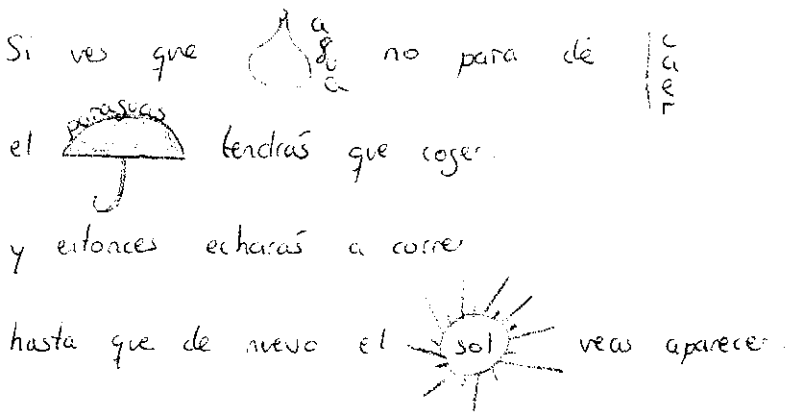 Si ves que agua no para de caer
el paraguas tendrás que coger.
y entonces echarás a correr
hasta que de nuevo el sol veas aparecer.